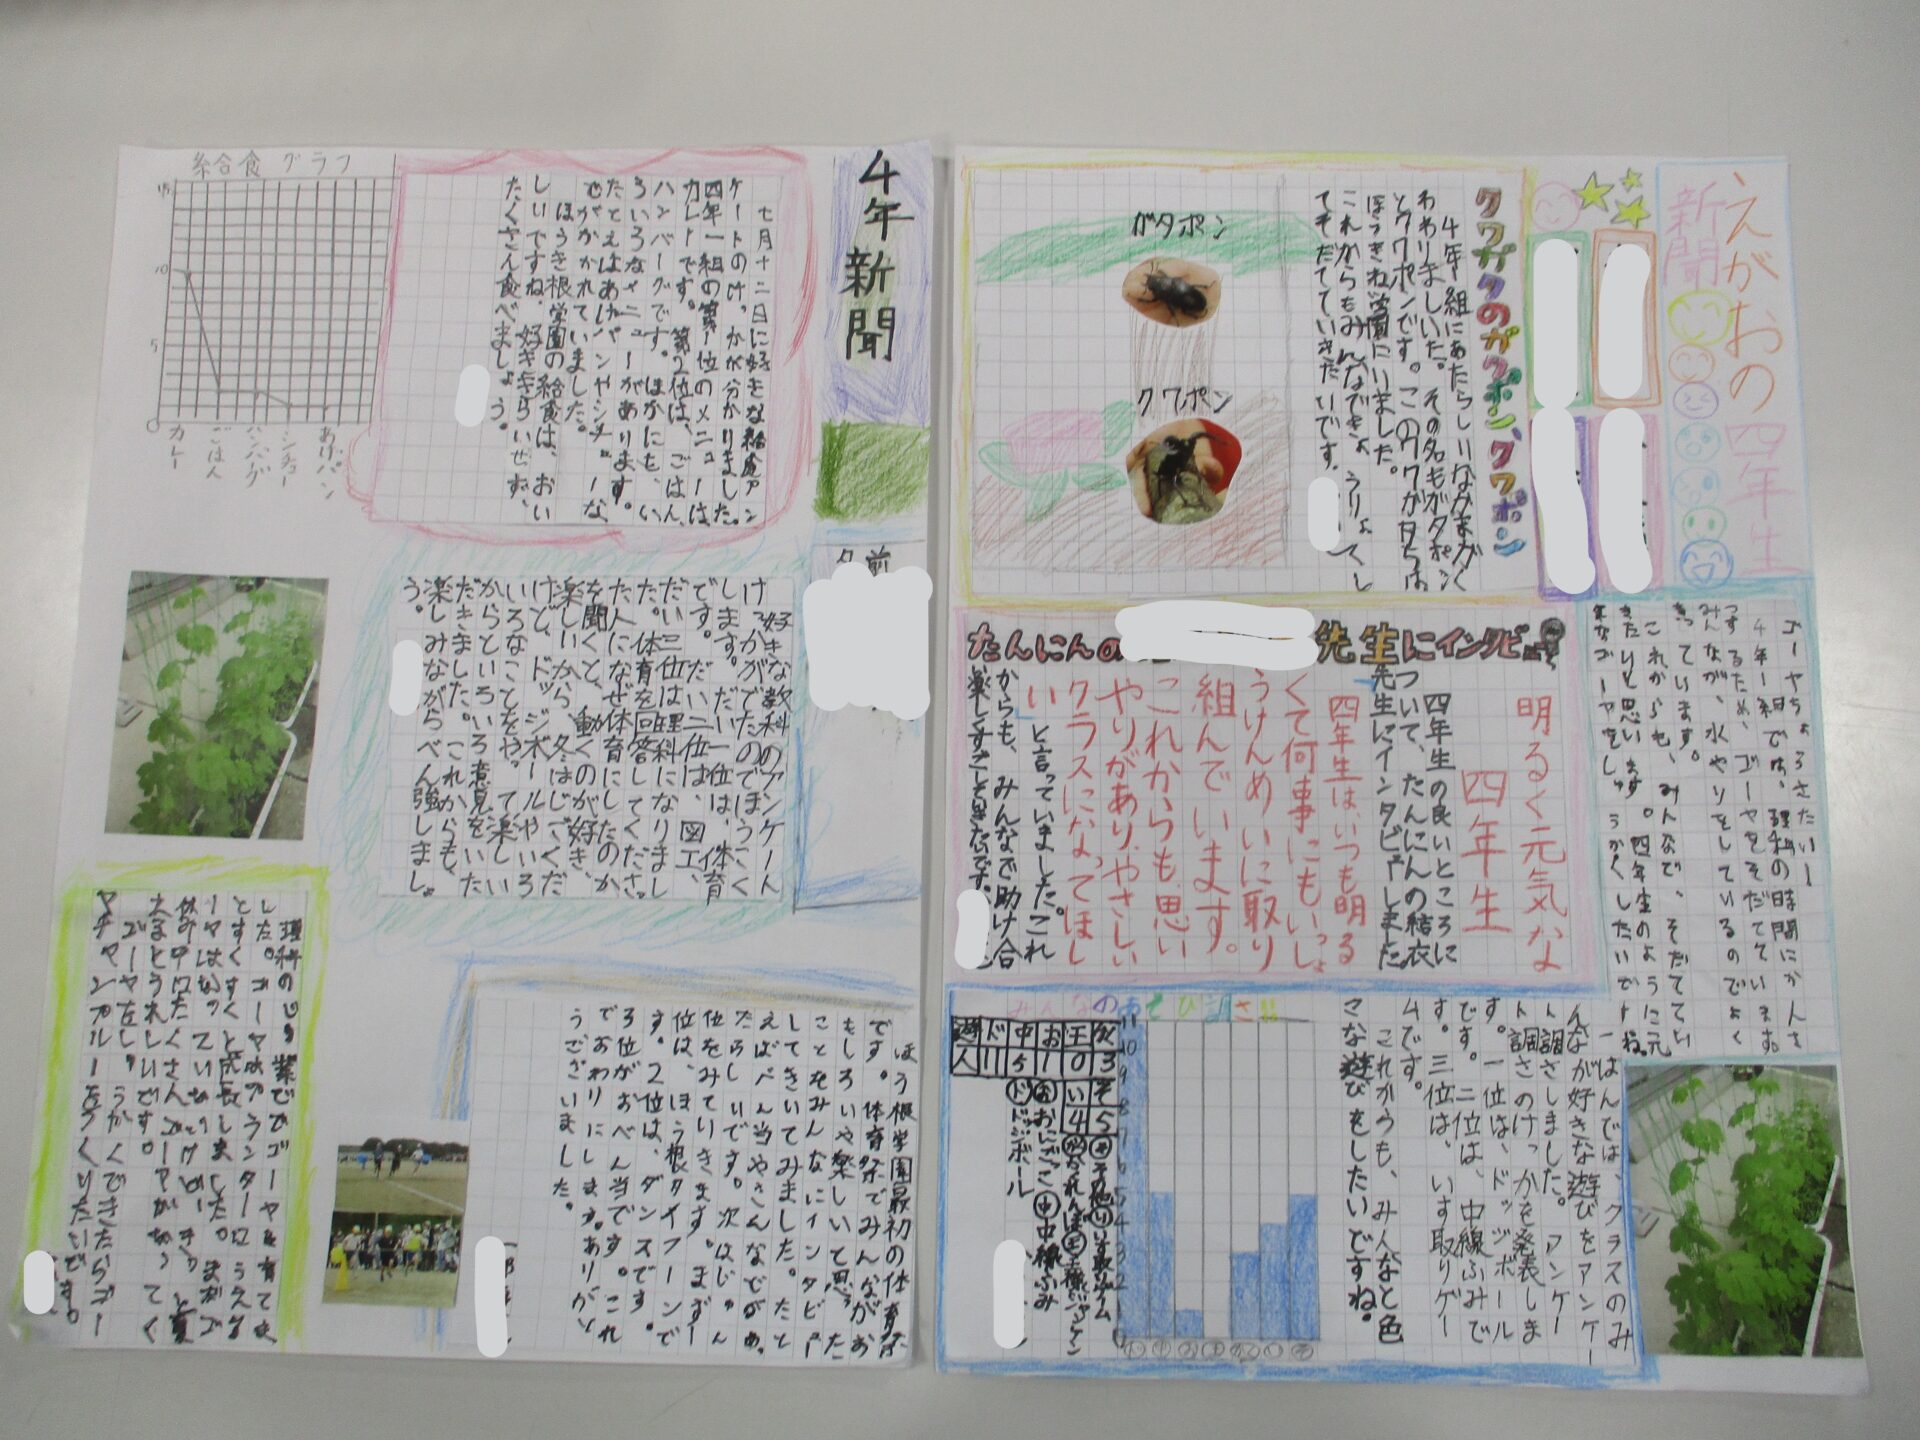 えがおの四年生
新聞
クワガタのガタポン、クワポン
4年一組にあたらしいなかまがく
わわりました。その名もガタポン
とクワポンです。このクワガタちは
ほうきね学園にいました。
これからもみんなできょうりょくし
てそだてていきたいです。
ガタポン
クワポン
ゴーヤちょうさたい!
4年一組では、理科の時間にかんさ
つするため、ゴーヤをそだてています。
みんなが、水やりをしているのでよく
育っています。
これからも、みんなで、そだててい
きたいと思います。四年生のように元
気なゴーヤをしゅうかくしたいですね。
たんにんの
先生にインタビュー
明るく元気な
四年生
四年生の良いところに
ついて、たんにんの結衣
先生にインタビューしました。
四年生は、いつも明る
くて何事にもいっしょ
うけんめいに取り
組んでいます。
これからも、思い
やりがあり、やさしい
クラスになってほし
い
と言っていました。これ
からも、みんなで助け合
い楽しくすごしたいです。
みんなのあそび調さ!!
一ぱんでは、クラスのみ
んなが好きな遊びをアンケー
ト調さしました。アンケー
ト調さのけっかを発表しま
す。一位は、ドッジボール
です。二位は、中線ふみで
す。三位は、いす取りゲー
ムです。
これからも、みんなと色
々な遊びをしたいですね。
遊 ド 中 お 王 かく
人 11 5 1 0 3
い そ
4 5
そその他 いいす取りゲーム
かかくれんぼ 王王様ジャンケン
おおにごっこ 中中線ふみ
ドドッジボール
11
10
9
8
7
6
5
4
3
2
1
0
ド 中 お 王 かく い そ
4年新聞
名前
七月十二日に好きな給食アン
ケートのけっかが分かりました。
四年一組の第一位のメニューは、
カレーです。第2位は、ごはん、
ハンバーグです。ほかにも、い
ろいろなメニューがあります。
たとえばあげパンやシチューな
どがかかれていました。
ほうき根学園の給食は、おい
しいですね。好ききらいせず、
たくさん食べましょう。
給食グラフ
15
10
5
0
カレー
ごはん
ハンバーグ
シチュー
あげパン
好きな教科のアンケート
けっかがでたのでほうこく
します。だい一位は、体育
です。だい二位は、図工、
だい三位は理科になりまし
た。体育を回答してくださっ
た人になぜ体育にしたのか
を聞くと、動くのが好き、
楽しいから、冬はじごくだ
けど、ドッジボールやいろ
いろなことをやって、楽しい
からといろいろ意見をいた
だきました。これからも、
楽しみながらべん強しましょ
う。
ほうき根学園最初の体育祭
です。体育祭でみんながお
もしろいや楽しいと思った
ことをみんなにインタビュー
してきいてみました。たと
えばべん当やさんなどがあっ
たらしいです。次はじゅん
位をみていきます。まず一
位は、ほうき根タイフーンで
す。2位は、ダンスです。
3位がおべん当です。これ
でおわりにします。ありがと
うございました。
理科のじゅ業ででゴーヤを育てま
した。ゴーヤはプランターにうえる
とすくすくと成長しました。まだゴ
ーヤはなっていないけど、きっと夏
休み中にたくさんゴーヤがなってく
るとうれしいです。
ゴーヤをしゅうかくできたらゴー
ヤチャンプルーをつくりたいです。